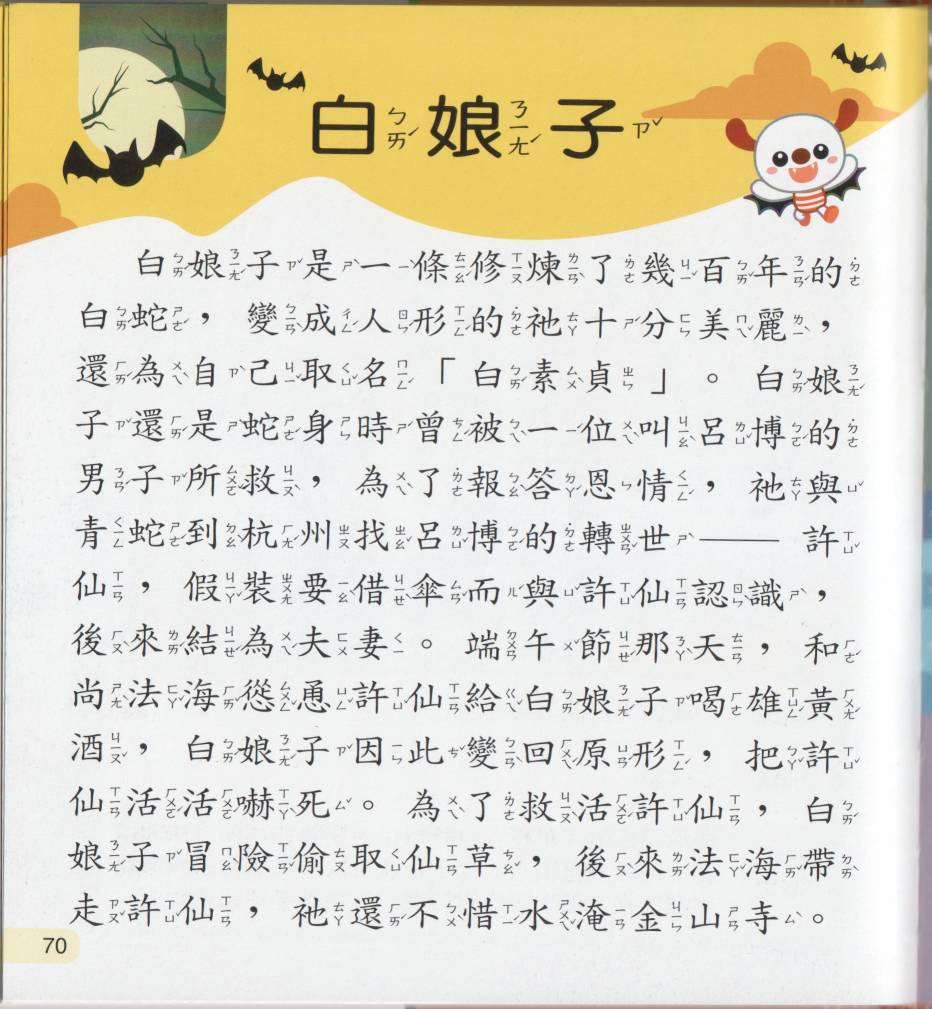 白娘子
白娘子是一條修煉了幾百年的
白蛇，變成人形的祂十分美麗，
還為自己取名「白素貞」。白娘
子還是蛇身時曾被一位叫呂博的
男子所救，為了報答恩情，祂與
青蛇到杭州找呂博的轉世——許
仙，假裝要借傘而與許仙認識，
後來結為夫妻。端午節那天，和
尚法海慫恿許仙給白娘子喝雄黃
酒，白娘子因此變回原形，把許
仙活活嚇死。為了救活許仙，白
娘子冒險偷取仙草，後來法海帶
走許仙，祂還不惜水淹金山寺。
70